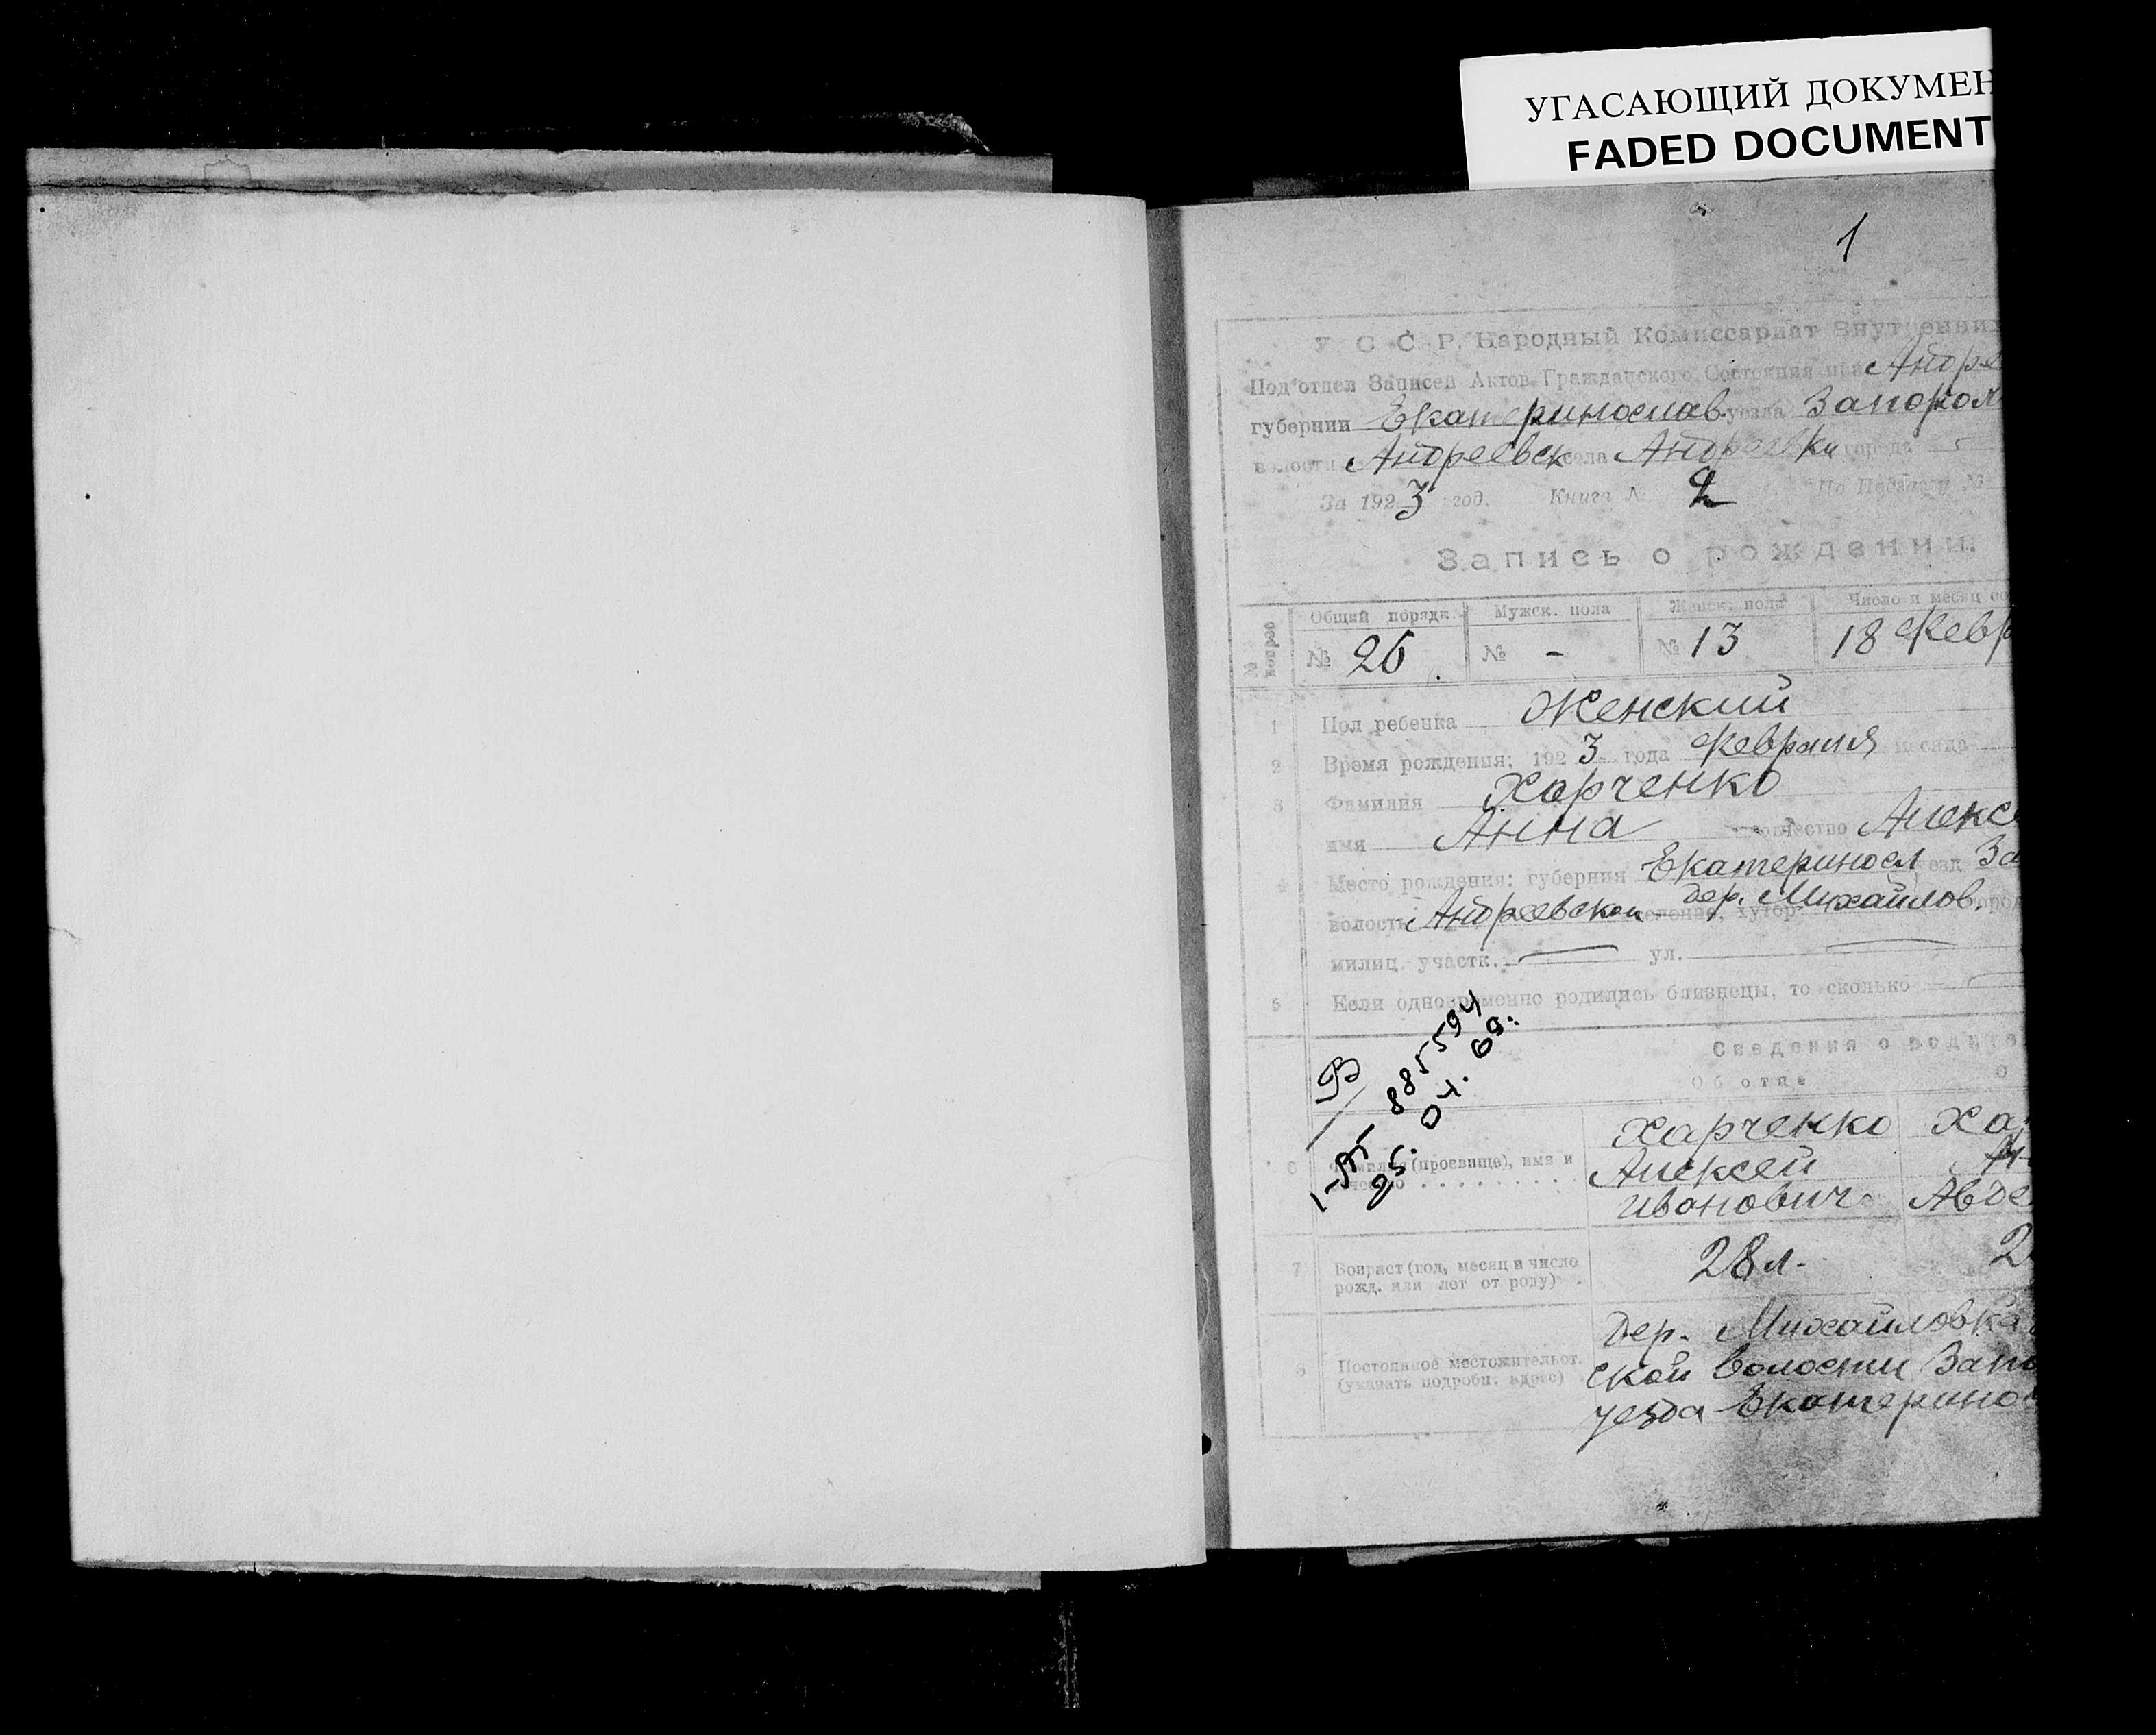 УГАСАЮЩИЙ ДОКУМЕН
FADED DOCUMENT
1
У С С Р. Народный Комиссариат Внутренних
Под'отдел Записей Актов Гражданского Состояния при Андре
губернии Екатеринослав. уезда Запорож
волости Андреевск села Андреевки города
За 1923 год. Книга № 2 По Порядку №
Запись о рождении.
Общий порядк. Мужск. пола Женск. пола Число и месяц со
№ вопрос № 26 № - № 13 18 Февр
1 Пол ребенка Женский
2 Время рождения: 1923 года Февраля месяца
3 Фамилия Харченко
имя Анна отчество Алексе
4 Место рождения: губерния Екатериносл уезд За
волость Андреевской селение, хутор дер. Михайлов. город
милиц. участк. — ул. —
5 Если одновременно родились близнецы, то сколько —
Сведения о родите
Об отце О
Харченко Хар
6 Фамилия (прозвище), имя и Алексей
отчество Иванович Авде
1-ЯП 885594
25. 04. 69.
7 Возраст (год, месяц и число рожд. или лет от роду) 28 л. 2
Дер. Михайловка
8 Постоянное местожительст. (указать подробн. адрес) ской волости Запо
уезда Екатерино